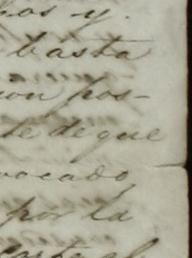 os y.
basta
ion pos-
te de que
vocado
por la